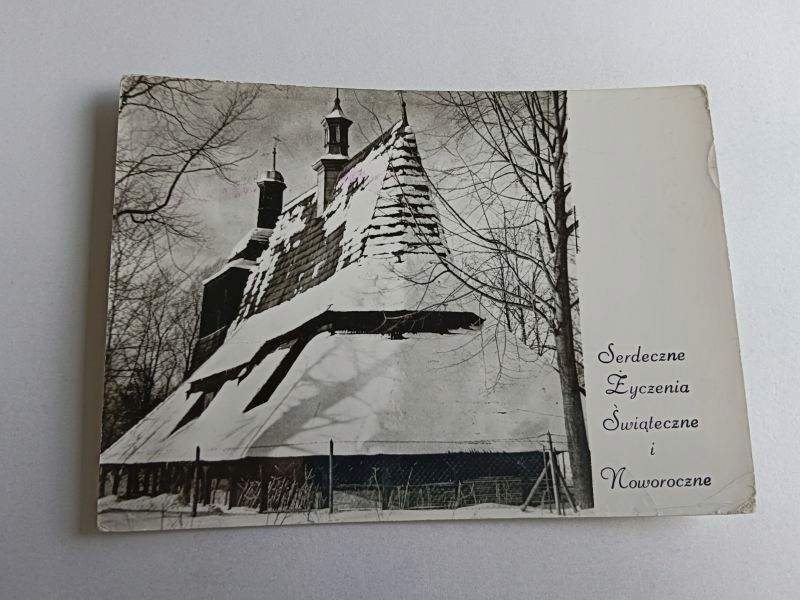 Serdeczne
Życzenia
Świąteczne
i
Noworoczne